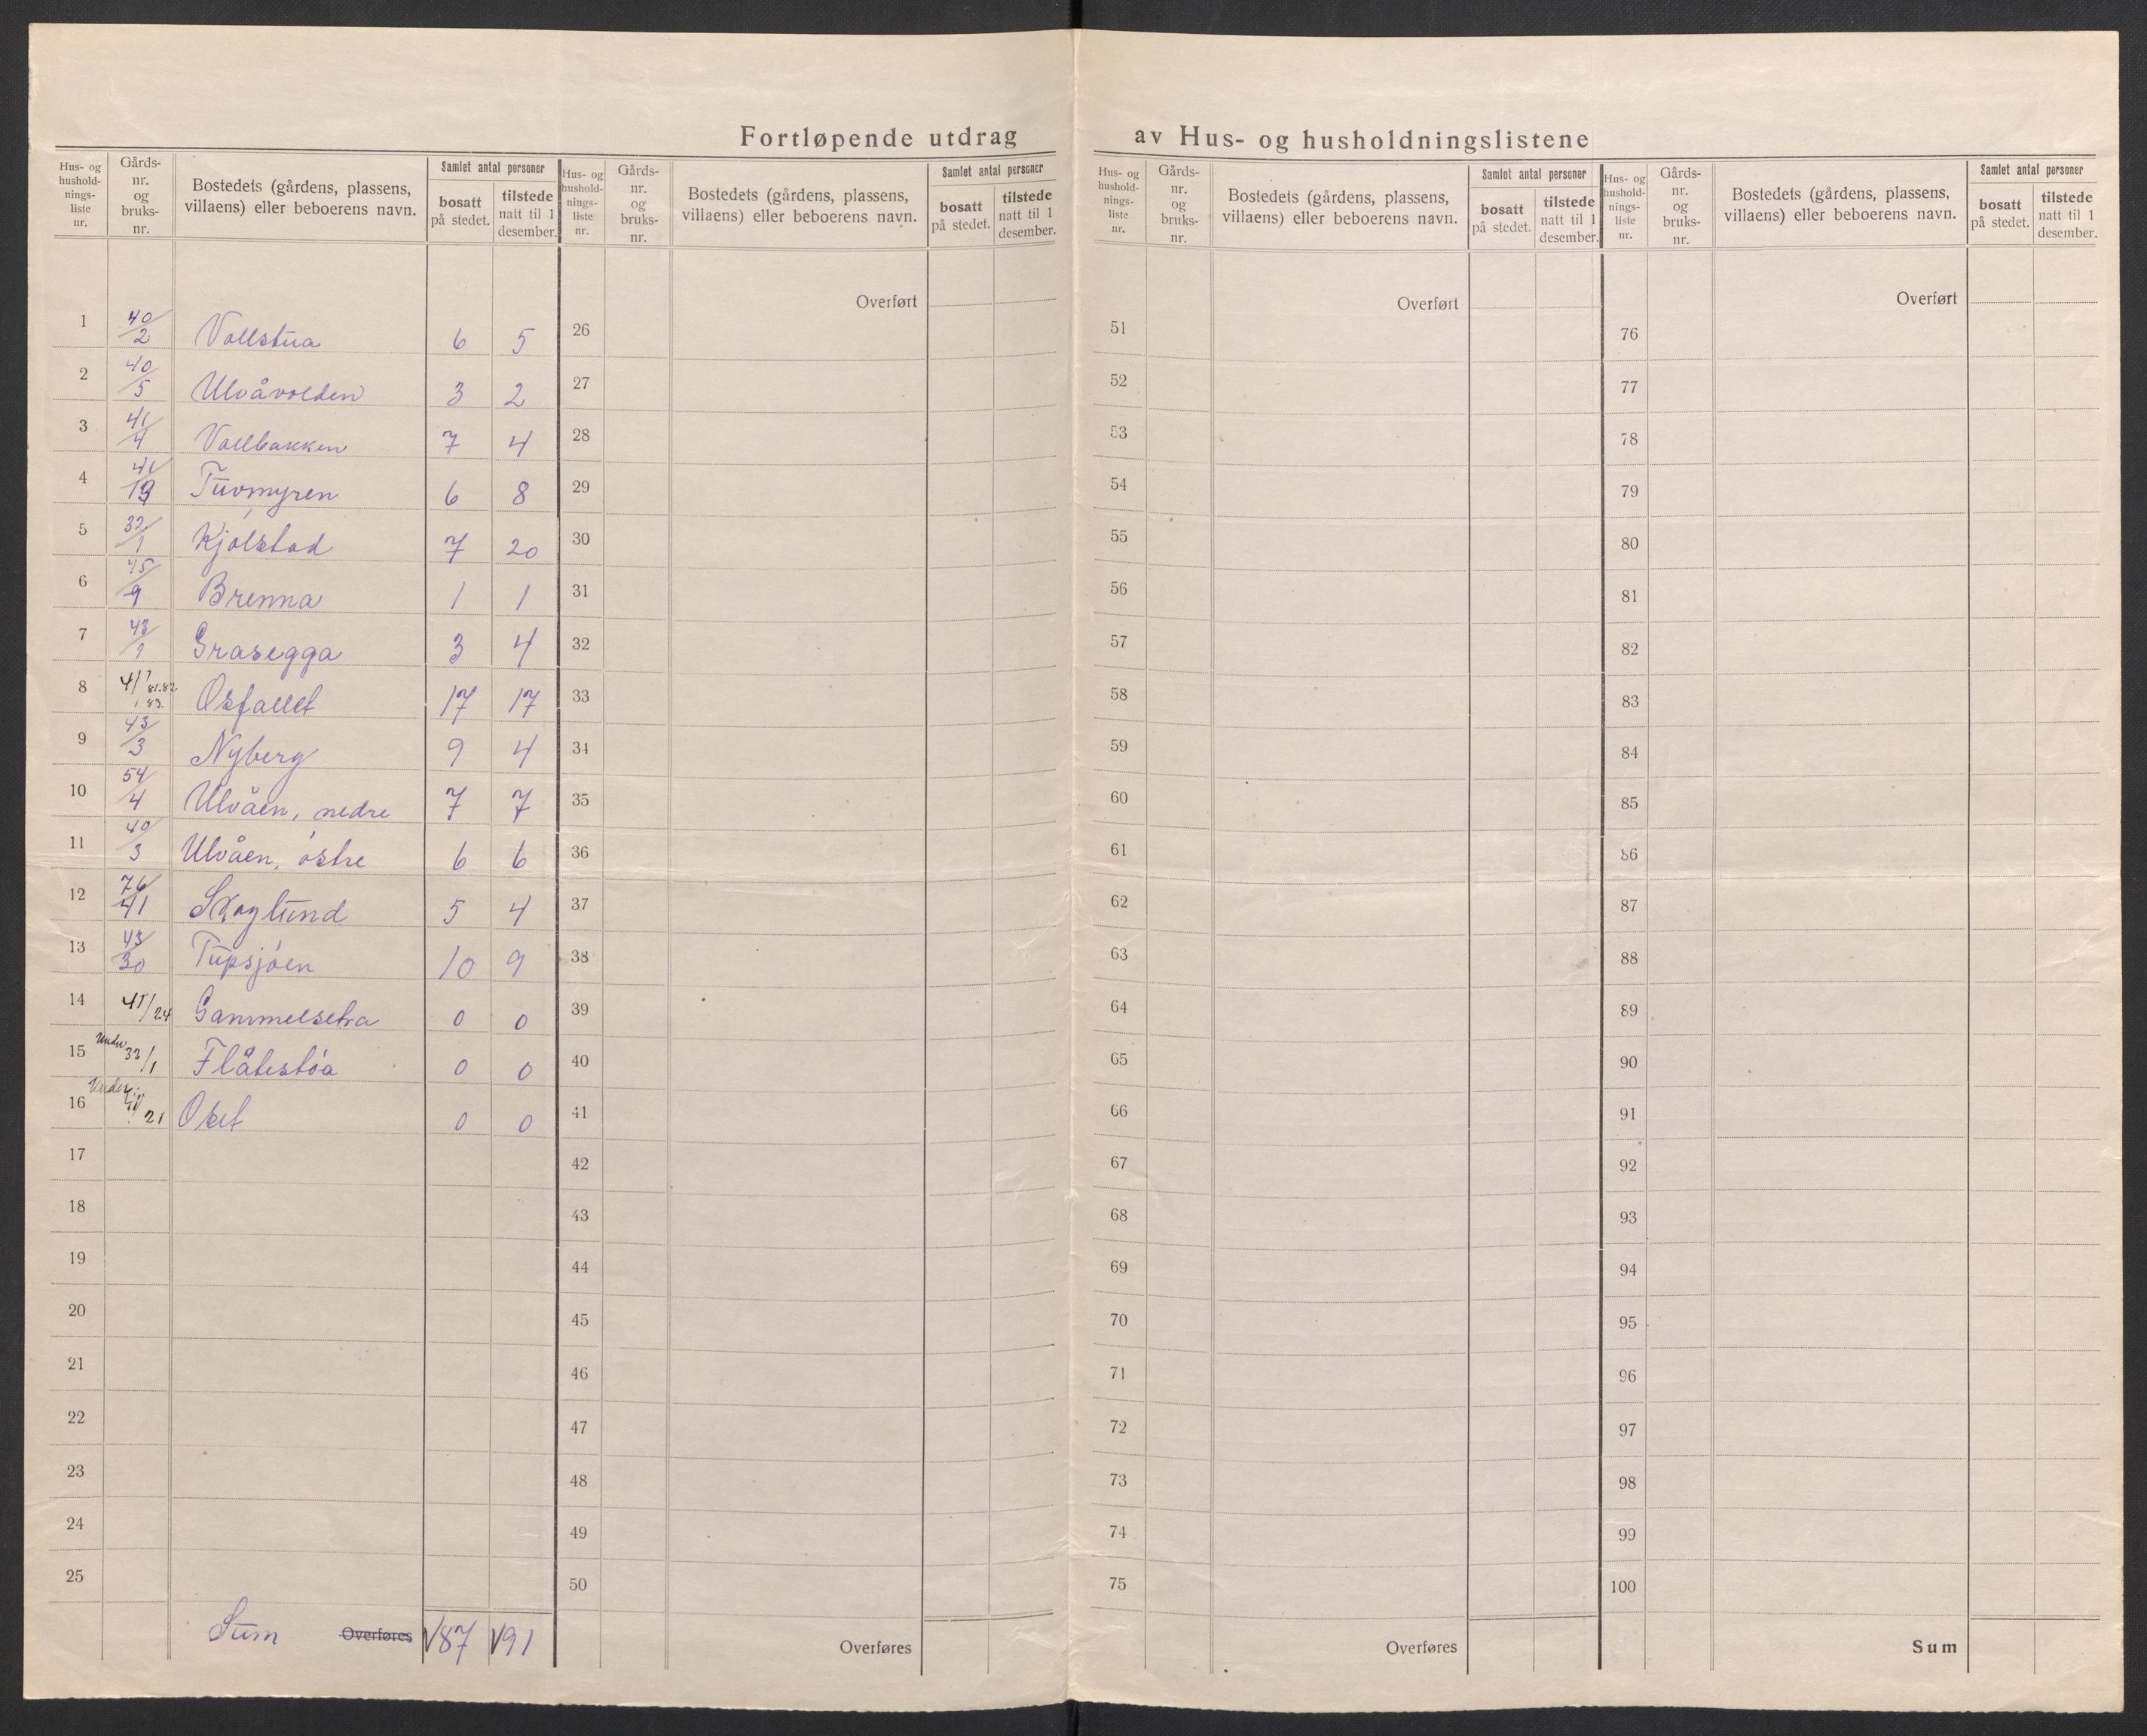 Fortløpende utdrag av Hus- og husholdningslistene
Hus- og hushold-nings-liste nr. | Gårds-nr. og bruks-nr. | Bostedets (gårdens, plassens, villaens) eller beboerens navn. | Samlet antal personer | bosatt på stedet. | tilstede natt til 1 desember.
Hus- og hushold-nings-liste nr. | Gårds-nr. og bruks-nr. | Bostedets (gårdens, plassens, villaens) eller beboerens navn. | Samlet antal personer | bosatt på stedet. | tilstede natt til 1 desember.
Hus- og hushold-nings-liste nr. | Gårds-nr. og bruks-nr. | Bostedets (gårdens, plassens, villaens) eller beboerens navn. | Samlet antal personer | bosatt på stedet. | tilstede natt til 1 desember.
Hus- og hushold-nings-liste nr. | Gårds-nr. og bruks-nr. | Bostedets (gårdens, plassens, villaens) eller beboerens navn. | Samlet antal personer | bosatt på stedet. | tilstede natt til 1 desember.
Overført Overført Overført
1 40/2 Vollstua 6 5 26 51 76
2 40/5 Ulvåvolden 3 2 27 52 77
3 41/4 Vollbakken 7 4 28 53 78
4 41/19 Tuvmyren 6 8 29 54 79
5 32/1 Kjølstad 7 20 30 55 80
6 45/9 Brenna 1 1 31 56 81
7 43/1 Grasegga 3 4 32 57 82
8 41/ 81.82 83. Osfallet 17 17 33 58 83
9 43/3 Nyberg 9 4 34 59 84
10 54/4 Ulvåen, nedre 7 7 35 60 85
11 40/3 Ulvåen, østre 6 6 36 61 86
12 76/41 Skoglund 5 4 37 62 87
13 43/30 Tupsjøen 10 9 38 63 88
14 41/24 Gammelsetra 0 0 39 64 89
15 Under 33/1 Flåtestøa 0 0 40 65 90
16 Under 21 Oset 0 0 41 66 91
17 42 67 92
18 43 68 93
19 44 69 94
20 45 70 95
21 46 71 96
22 47 72 97
23 48 73 98
24 49 74 99
25 50 75 100
Sum Overføres √87 √91 Overføres Overføres Sum